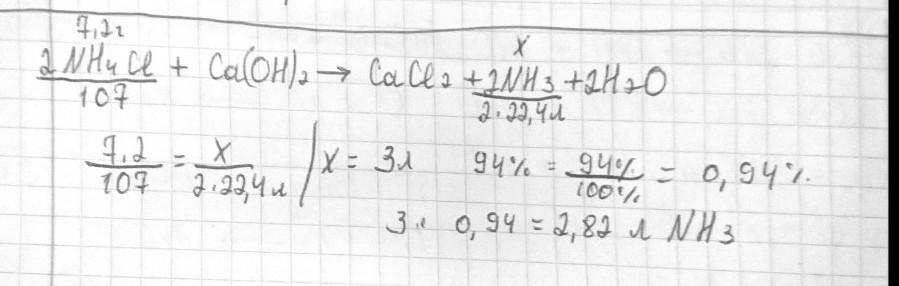 7,2г x
2NH4Cl + Ca(OH)2 → CaCl2 + 2NH3 + 2H2O
107 2·22,4л
7,2/107 = x/2·22,4л | x = 3л 94% = 94%/100% = 0,94%.
3· 0,94 = 2,82 л NH3